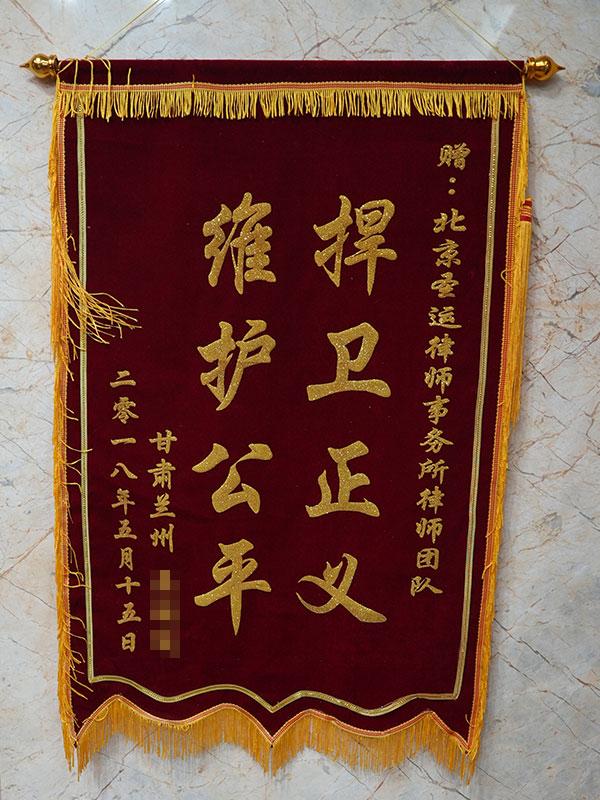 赠：北京圣运律师事务所律师团队
捍卫正义
维护公平
甘肃兰州
二零一八年五月十五日